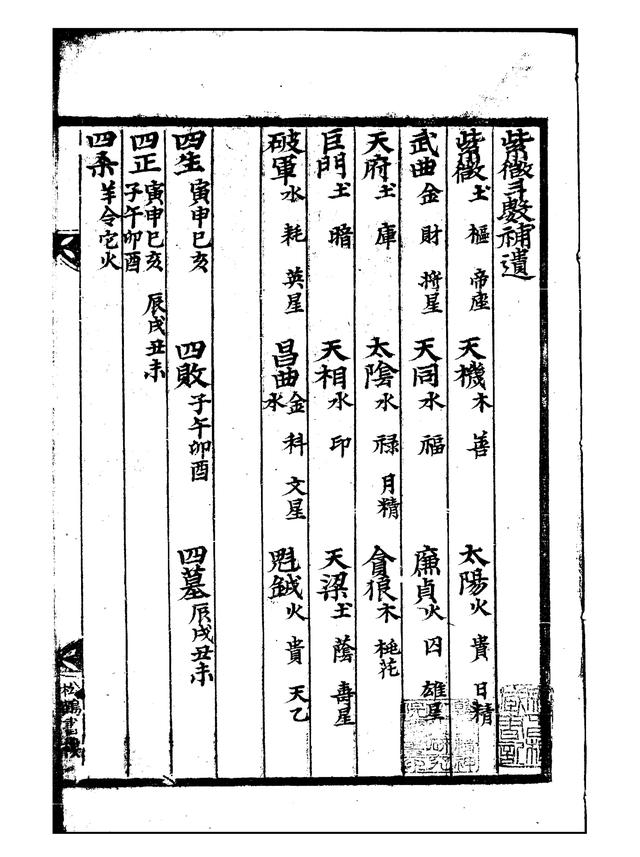 紫微斗數補遺
紫微土 樞 帝座 天機木 善 太陽火 貴 日精
武曲金 財 將星 天同水 福 廉貞火 囚 雄星
天府土 庫 太陰水 祿 月精 貪狼木 桃花
巨門土 暗 天相水 印 天梁土 蔭 壽星
破軍水 耗 英星 昌曲金水 科 文星 魁鉞火 貴 天乙
四生 寅申巳亥 四敗 子午卯酉 四墓 辰戌丑未
四正 寅申巳亥 子午卯酉 辰戌丑未
四柔 羊令它火